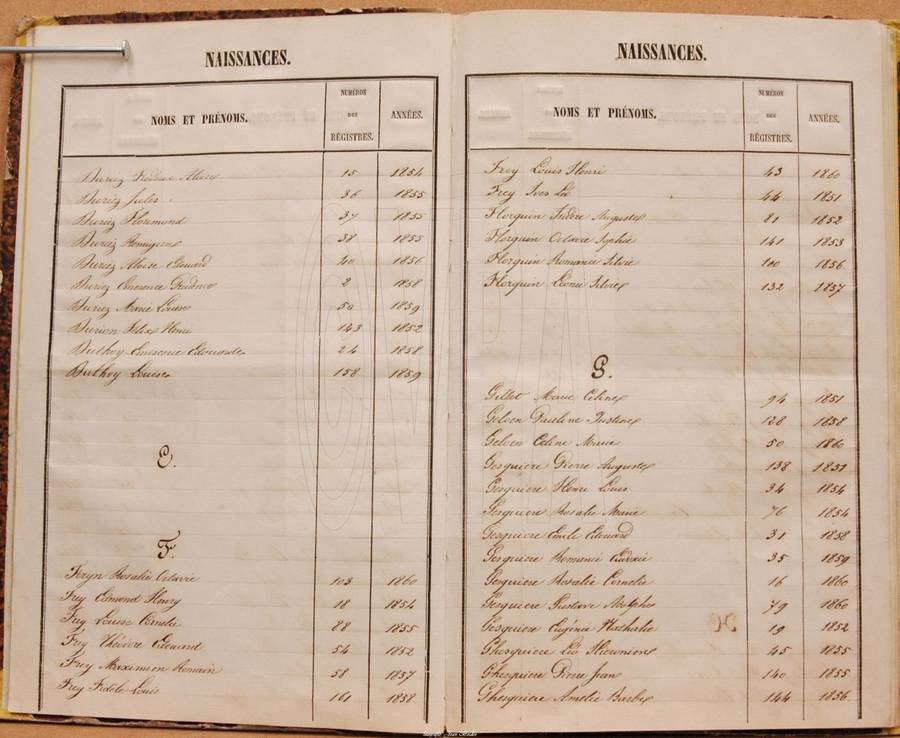 NAISSANCES.
NOMS ET PRÉNOMS. NUMÉROS DES RÉGISTRES. ANNÉES.
Duriez 15 1854
Duriez Jules 36 1855
Duriez Florimond 37 1855
Duriez 38 1855
Duriez Aloïse Edouard 40 1856
Duriez Emerence Prudence 2 1858
Duriez Marie Louise 50 1859
Durion Felix Henri 143 1852
Duthoy Emerence Edouarde 24 1858
Duthoy Louise 158 1859
E.
F.
Feryn Rosalie Octavie 103 1860
Frey Edmond Henry 18 1854
Frey Louise Cornelie 88 1855
Frey Théodore Edouard 54 1852
Frey Maximien Romain 58 1857
Frey Fidèle Louis 161 1858
NAISSANCES.
NOMS ET PRÉNOMS. NUMÉROS DES RÉGISTRES. ANNÉES.
Frey Louis Henri 43 1860
Frey Ives Léo 44 1851
Florquin Isidore Auguste 81 1852
Florquin Octavie Sophie 141 1853
Florquin Romanie Silvie 100 1856
Florquin Léonie Silvie 132 1857
G.
Gillet Marie Celine 94 1851
Geloen Pauline Justine 128 1858
Geloen Celine Marie 50 1860
Gesquiere Pierre Auguste 138 1851
Gesquiere Henri Louis 34 1854
Gesquiere Rosalie Marie 76 1854
Gesquiere Emile Edouard 31 1858
Gesquiere Romanie Eudoxie 35 1859
Gesquiere Rosalie Cornelie 16 1860
Gesquiere Gustave Adolphe 79 1860
Gesquiere Eugénie Nathalie 19 1852
Ghesquiere Léo 45 1855
Ghesquiere Pierre Jean 140 1855
Ghesquiere Amelie Barbe 144 1856